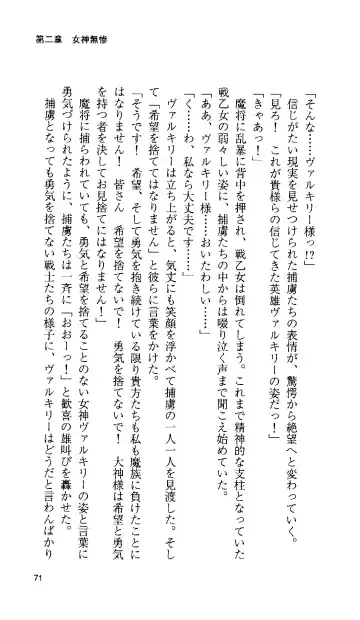 第二章　女神無惨
「そんな……ヴァルキリー様っ!?」
　信じがたい現実を見せつけられた捕虜たちの表情が、驚愕から絶望へと変わっていく。
「見ろ！　これが貴様らの信じてきた英雄ヴァルキリーの姿だっ！」
「きゃあっ！」
　魔将に乱暴に背中を押され、戦乙女は倒れてしまう。これまで精神的な支柱となっていた
戦乙女の弱々しい姿に、捕虜たちの中からは啜り泣く声まで聞こえ始めていた。
「ああ、ヴァルキリー様……おいたわしい……」
「く……わ、私なら大丈夫です……」
　ヴァルキリーは立ち上がると、気丈にも笑顔を浮かべて捕虜の一人一人を見渡した。そし
て「希望を捨ててはなりません」と彼らに言葉をかけた。
「そうです！　希望、そして勇気を抱き続けている限り貴方たちも私も魔族に負けたことに
はなりません！　皆さん　希望を捨てないで！　勇気を捨てないで！　大神様は希望と勇気
を持つ者を決してお見捨てにはなりません！」
　魔将に捕らわれていても、勇気と希望を捨てることのない女神ヴァルキリーの姿と言葉に
勇気づけられたように、捕虜たちは一斉に「おおーっ！」と歓喜の雄叫びを轟かせた。
　捕虜となっても勇気を捨てない戦士たちの様子に、ヴァルキリーはどうだと言わんばかり
71